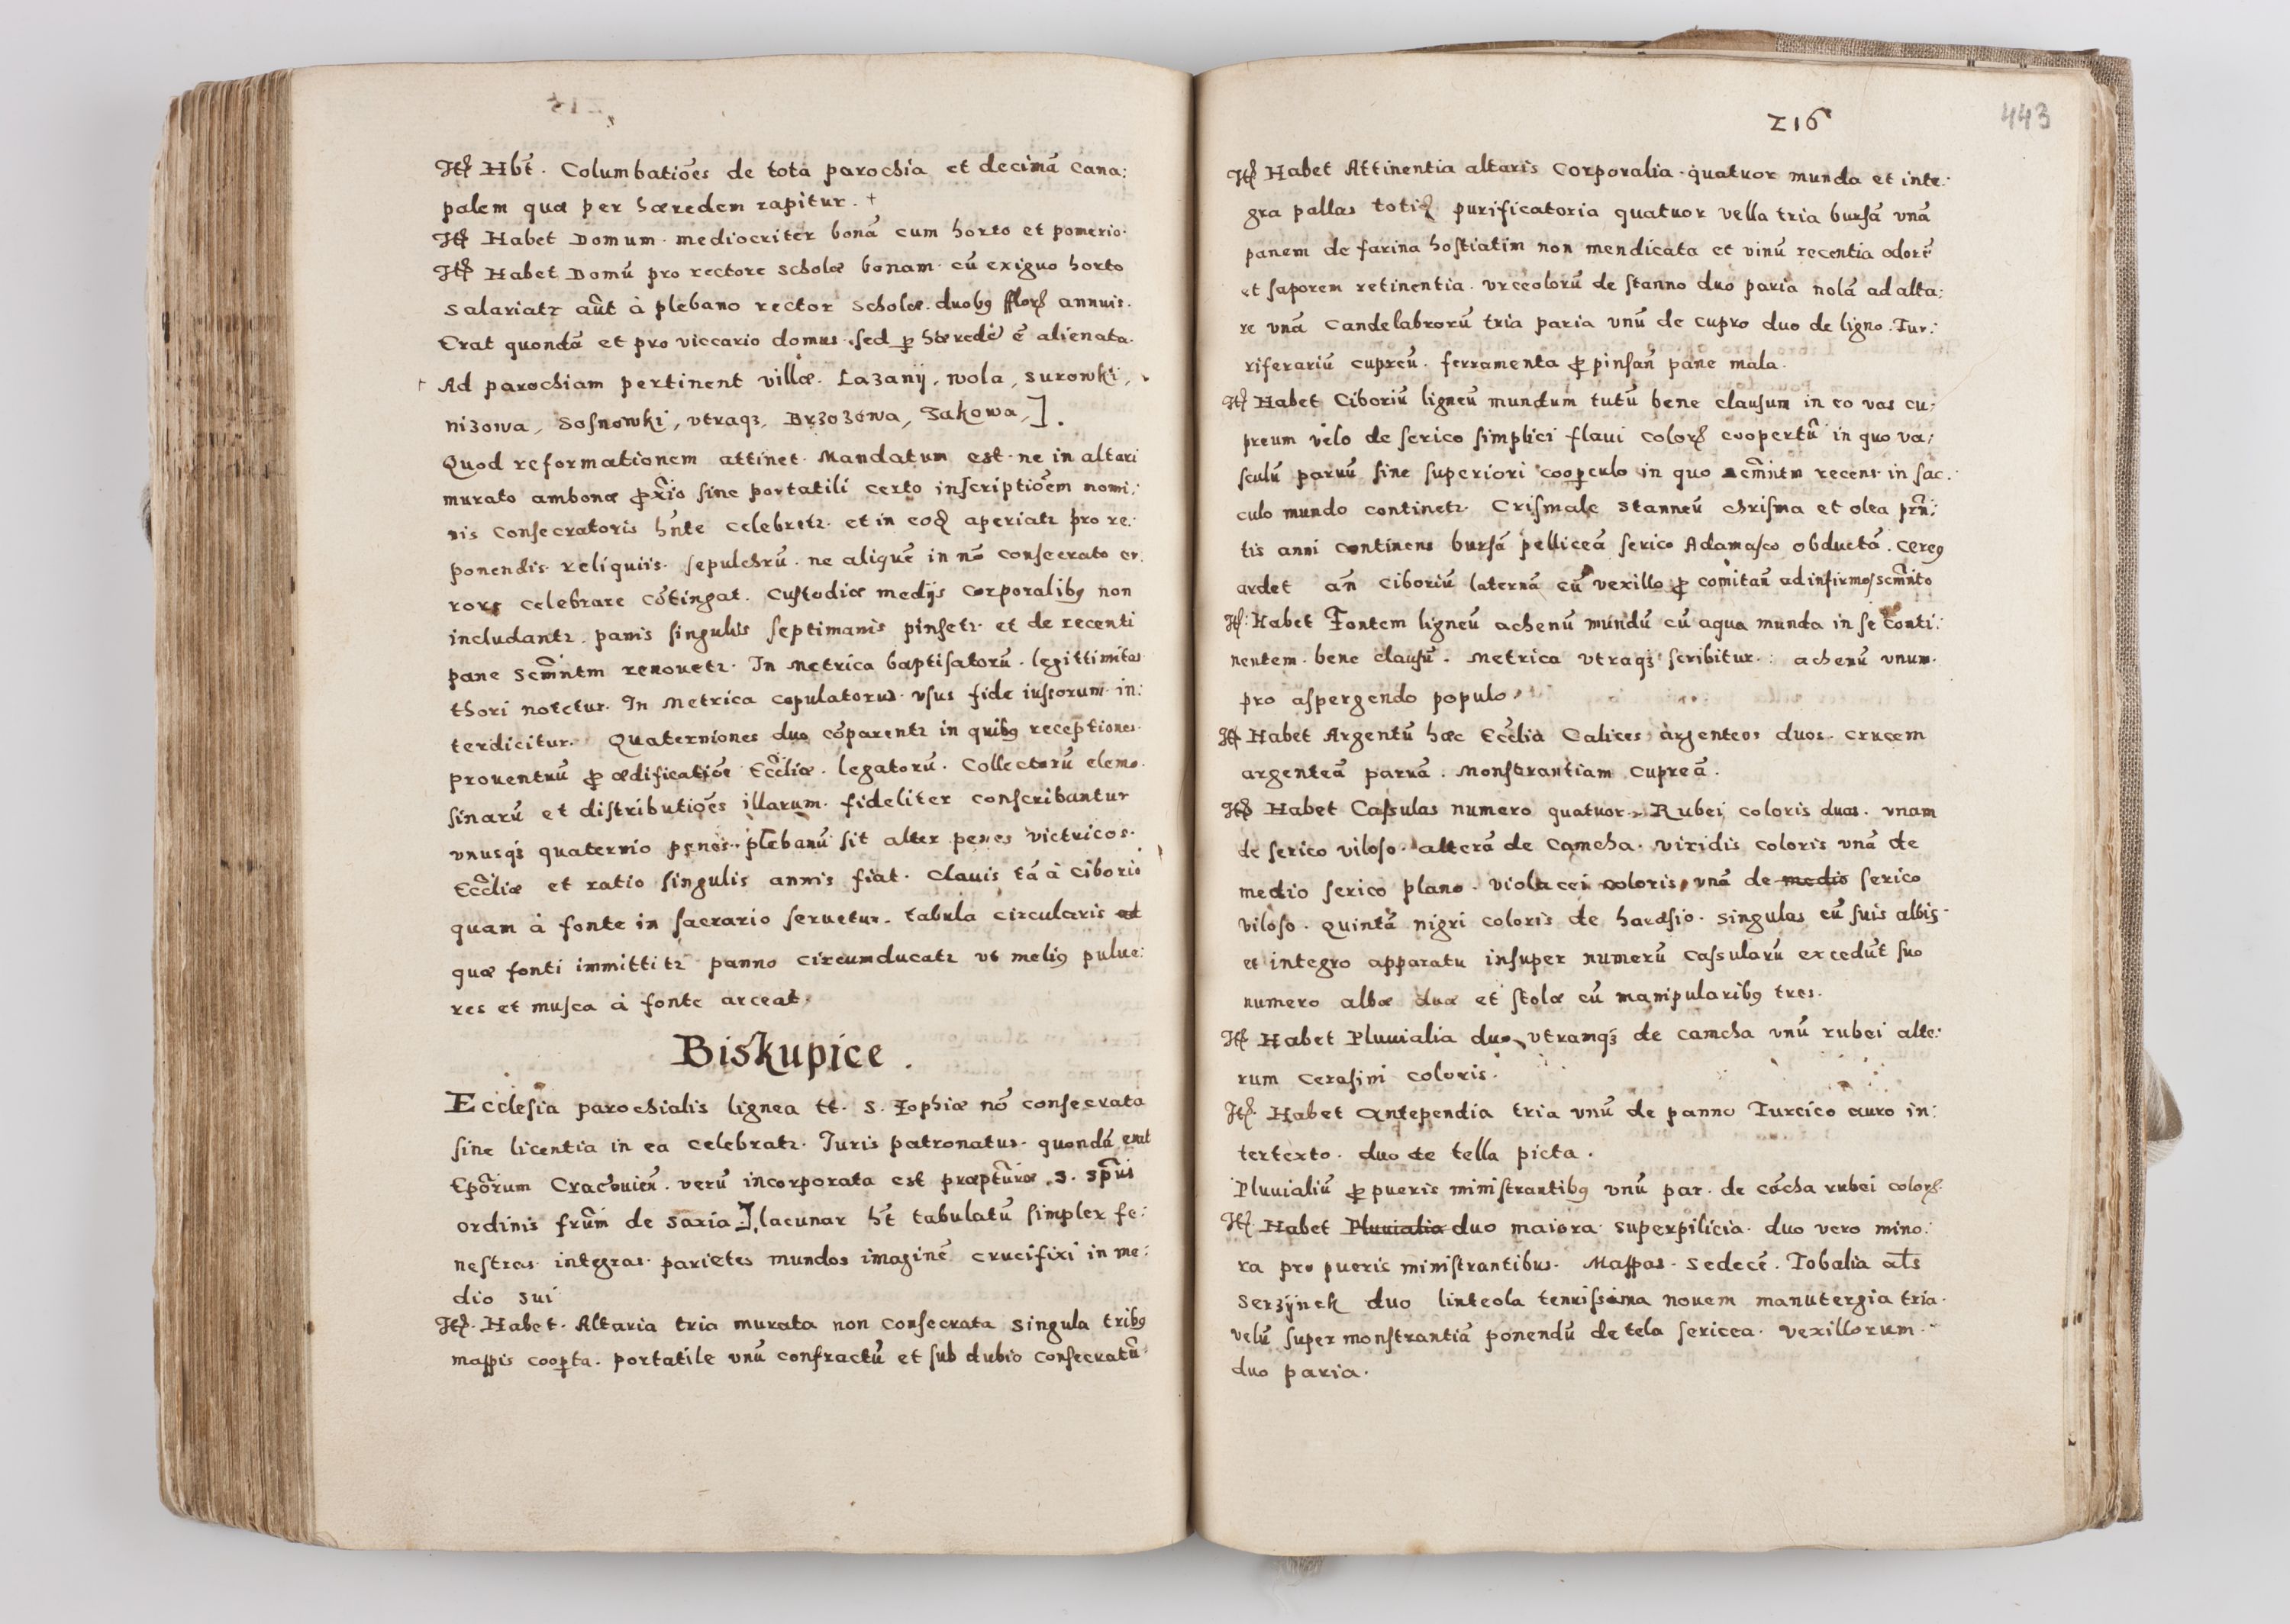 Itē Hbt̄. Columbatiōes de tota parochia et decimā Cana:
palem quæ per hæredem rapitur. +
Itē Habet Domum mediocriter bonā cum horto et pomerio.
Itē Habet Domū pro rectore scholæ bonam cū exiguo horto
salariatr aūt à plebano rector scholæ duobꝯ fflorꝭ annuis.
Erat quondā et pro viccario domus sed ꝑ hæredē ē alienata.
+ Ad parochiam pertinent villæ. Lazanÿ, wola, surowki,
nizowa, sosnowki, vtraqꝫ, Brzozowa, Zakowa,].
Quod reformationem attinet. Mandatum est ne in altari
murato ambonæ ꝓxio sine portatili certo inscriptiōem nomi:
nis Consecratoris hn̄te celebretr. et in eoꝗ aperiatr pro re:
ponendis reliquiis sepulchrū ne aliquē in nō consecrato er:
rore celebrare cōtingat. Custodiæ medijs Corporalibꝯ non
includantr. panis singulis septimanis pinsetr et de recenti
pane scm̄ntm renouetr. In Metrica baptisatorū legittimitas
thori notetur. In Metrica copulatorum vsus fide iussorum in:
terdicitur. Quaterniones duo cōparentr in quibꝯ receptiones
prouentuū ꝓ ædificatiōe Ecc̄liæ. legatorū. Collectorū elemo.
sinarū et distributiōes illarum fideliter conscribantur
vnusqꝫ quaternio penes plebanū sit alter penes victricos
Ecc̄liæ et ratio singulis annis fiat. Clauis tā à Ciborio
quam à fonte in sacrario seruetur. tabula circularis
quæ fonti immittitr panno circumducatr vt meliꝯ pulue:
res et musca à fonte arceat.
Biskupice.
Ecclesia parochialis lignea tt. S. Zophiæ nō consecrata
sine licentia in ea celebratr. Iuris patronatus quondā erat
Epōrum Cracouieñ. verū incorporata est præptūræ S. Sp̄us
ordinis frūm de Saxia], lacunar ht̄ tabulatū simplex fe:
nestras integras parietes mundos imaginē crucifixi in me:
dio sui
Itē. Habet. Altaria tria murata non consecrata singula tribꝯ
mappis coopta. portatile vnū confractū et sub dubio consecratū
216
443
Itē Habet Attinentia altaris Corporalia quatuor munda et inte:
gra pallas totiꝗ purificatoria quatuor vella tria bursā vnā
panem de farina hostiatim non mendicata et vinū recentia odorē
et saporem retinentia. vrceolorū de stanno duo paria nolā ad alta:
re vnā Candelabrorū tria paria vnū de cupro duo de ligno. Tur:
riferariū cupreū. ferramenta ꝓ pinsañ pane mala.
Itē Habet Ciboriū ligneū mundum tutū bene clausum in eo vas cu:
preum velo de serico simplici flaui colorꝭ coopertū in quo va:
sculū paruū sine superiori cooperculo in quo scm̄ntm recens in sac:
culo mundo continetr. Crismale stanneū chrisma et olea prn̄:
tis anni continens bursā pelliceā serico Adamasco obductā. Cereꝯ
ardet añ Ciboriū laternā cū vexillo ꝓ comitañ ad infirmos scm̄nto
Itē: Habet Fontem ligneū achenū mundū cū aqua munda in se conti:
nentem bene clausū. Metrica vtraqꝫ scribitur: achenū vnum
pro aspergendo populo.
Itē Habet Argentū hæc Ecc̄lia Calices argenteos duos. crucem
argenteā parvā. Monstrantiam cupreā.
Itē Habet Cassulas numero quatuor. Rubei coloris duas. vnam
de serico viloso. alterā de Camcha. viridis coloris vnā de
medio serico plano. violacei coloris vnā de medio serico
viloso. quintā nigri coloris de harasio. singulas cū suis albis
et integro apparatu insuper numerū cassularū excedūt suo
numero albæ duæ et stolæ cū manipularibꝯ tres.
Itē Habet Pluuialia duo, vtramqꝫ de camcha vnū rubei alte:
rum cerasini coloris.
Itē. Habet Antependia tria vnū de panno Turcico auro in:
tertexto. duo de tella picta.
Pluuialiū ꝓ pueris ministrantibꝯ vnū par de cācha rubei colorꝭ.
Itē Habet Pluuialia duo maiora superpilicia. duo vero mino:
ra pro pueris ministrantibus. Mappas sedecē. Tobalia al̄s
Serzÿnek duo linteola tenuissima nouem manutergia tria.
velū super monstrantiā ponendū de tela sericea. vexillorum
duo paria.